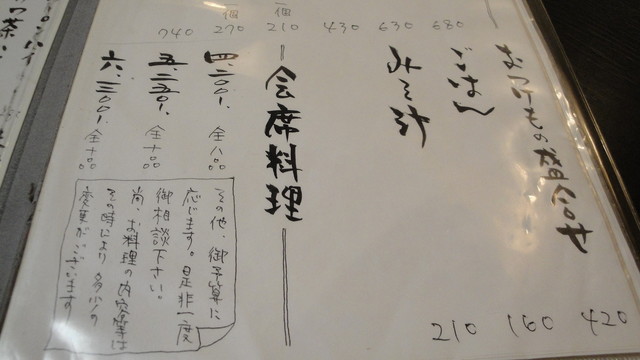 680
630
430
一個
210
一個
270
740
おつけもの盛合せ 420
ごはん 160
みそ汁 210
会席料理
四、二〇〇、 全八品
五、二五〇、 全十品
六、三〇〇、 全十品
その他、御予算に
応じます。是非一度
御相談下さい。
尚、お料理の内容等は
その時により多少の
変更がございます